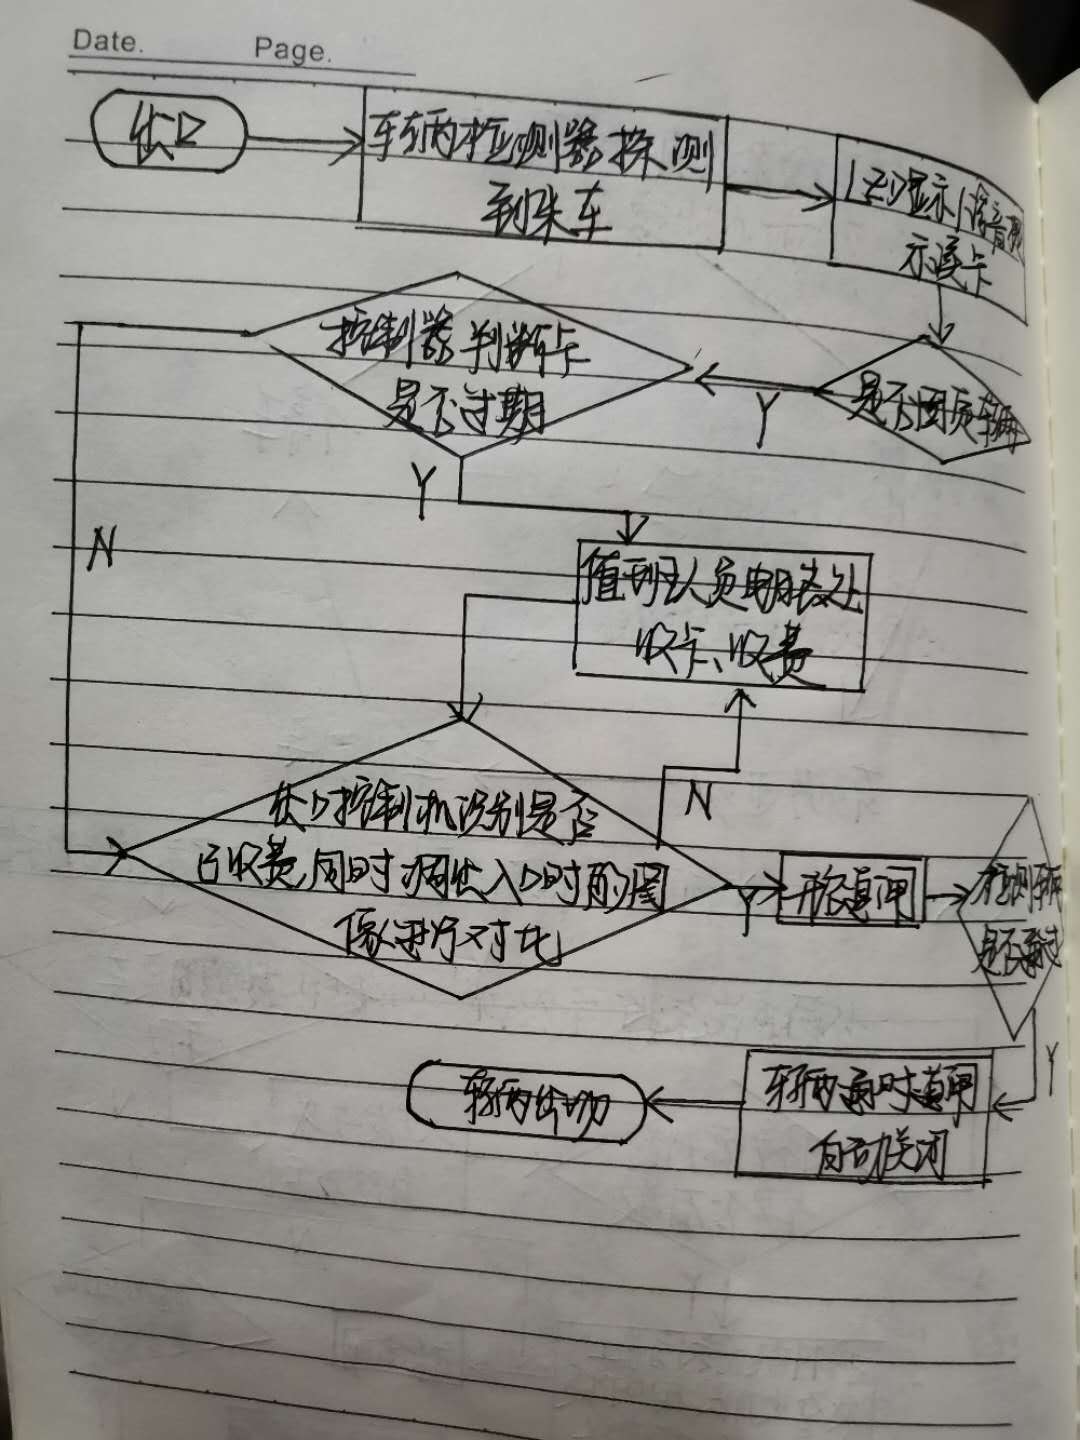 Date. Page.
出口
车辆检测器探测
到来车
LED显示/语音提
示读卡
控制器判断卡
是否过期
是否固定车辆
Y
Y
N
值班人员
收卡、收费
出口控制机识别是否
已收费,同时调出入口时的图
像进行对比
N
Y
开启道闸
检测车辆
是否通过
Y
车辆通过时道闸
自动关闭
车辆出场